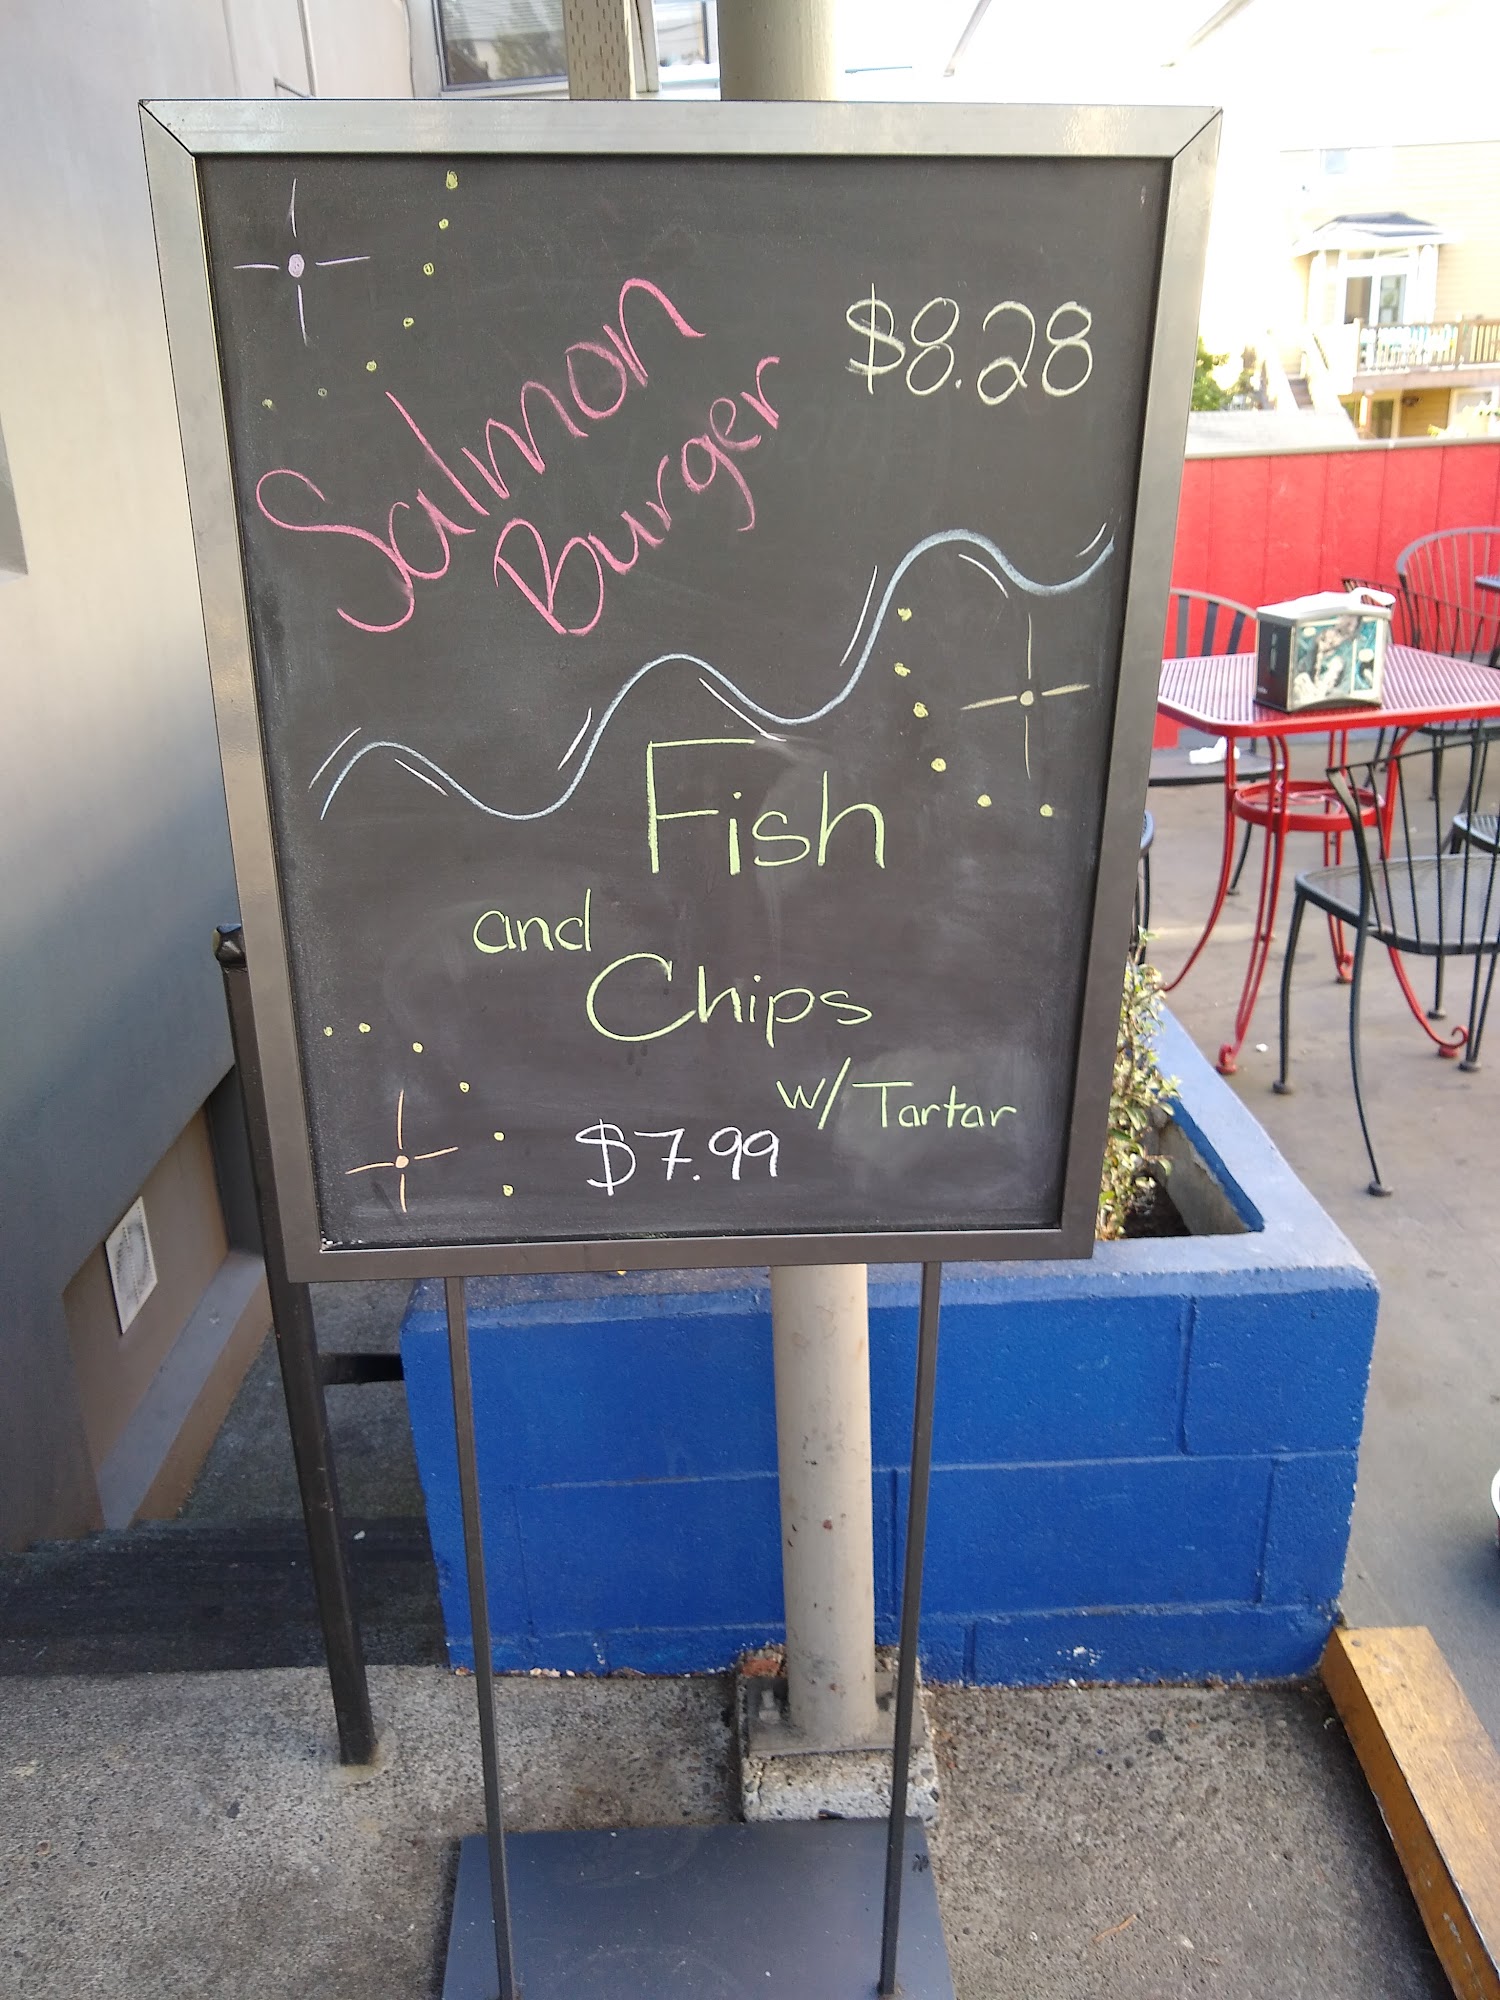 Salmon
Burger
$8.28
Fish
and
Chips
w/ Tartar
$7.99